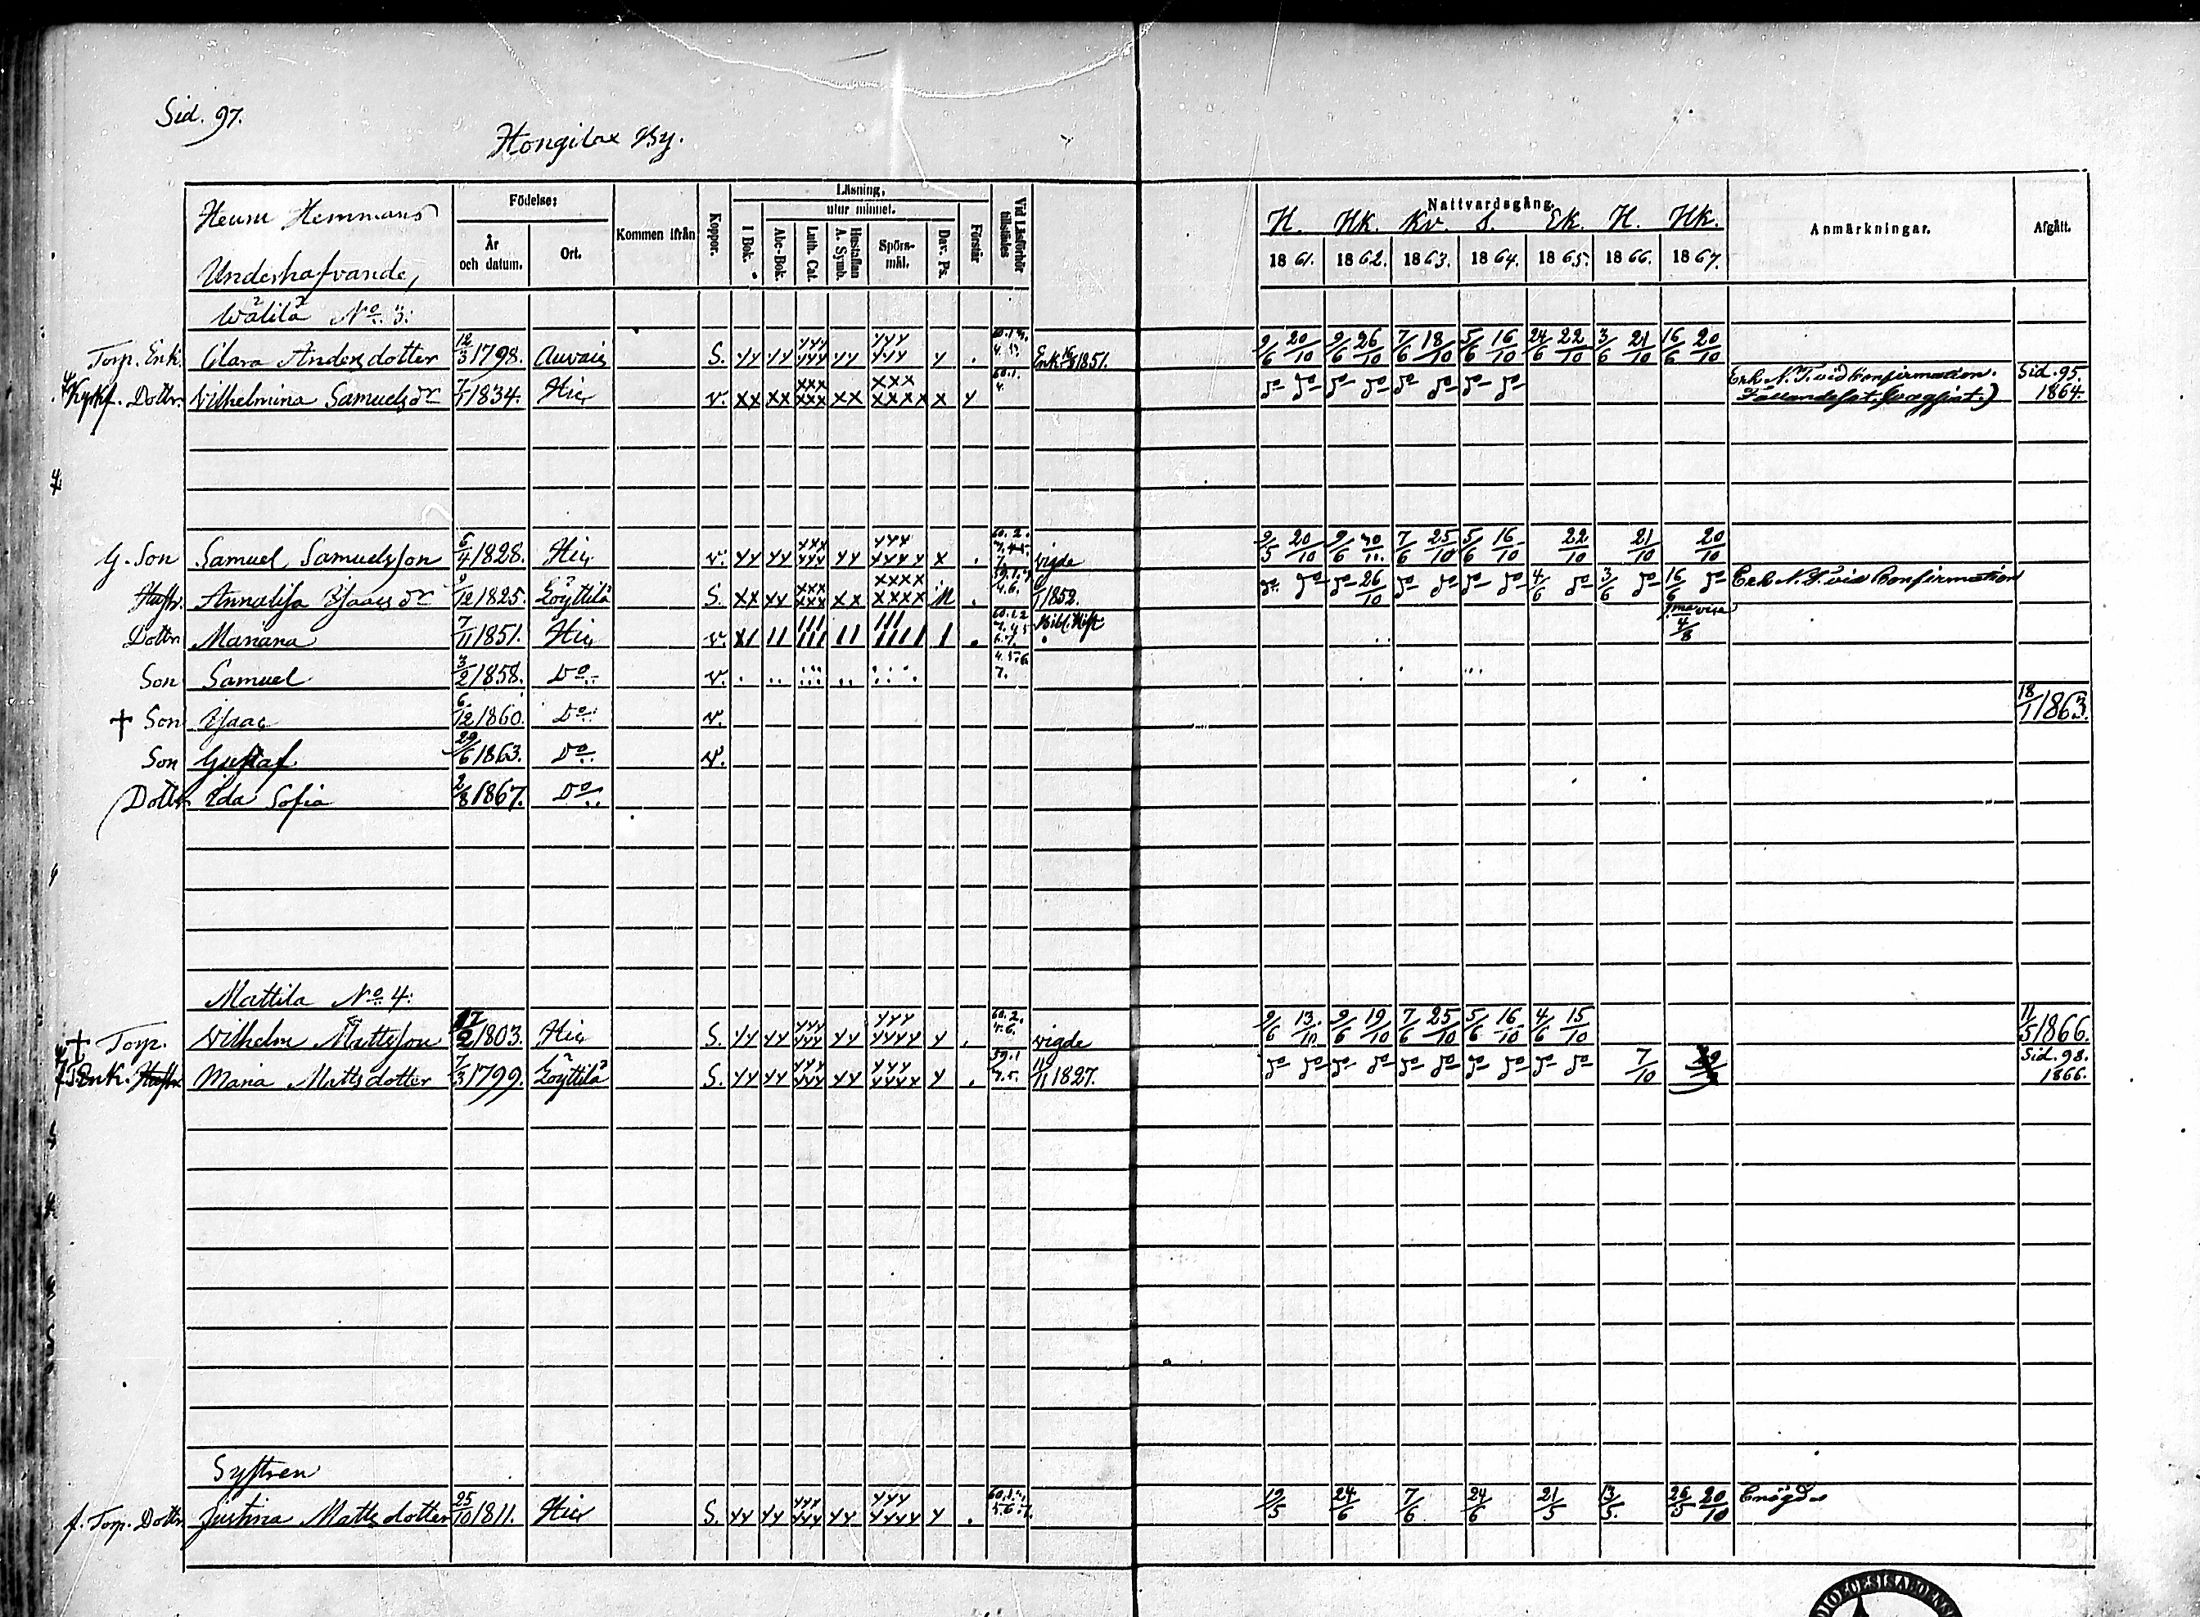 Sid. 97.
Hongilax By.
Heunu Hemmans Underhafvande,
Födelse:
År och datum.
Ort.
Kommen ifrån
Koppor.
Läsning,
utur minnet.
I Bok.
Abc-Bok.
Luth. Cat.
Hustaflan A. Symb.
Spörsmål.
Dav. Ps.
Förstår
Vid Läsförhör tillstädes
Nattvardsgång.
H. Hk. Kv. S. Ek. H. Hk.
1861. 1862. 1863. 1864. 1865. 1866. 1867.
Anmärkningar.
Afgått.
Wälilä No. 3:
Torp. Enk. Clara Andersdotter 12/3 1798. Auvais S. yy yy yyy yyy yy yyy yyy y . Enk. 1851. 9/6 20/10 9/6 26/10 7/6 18/10 5/6 16/10 24/6 22/10 3/6 21/10 16/6 20/10
Dottr. Vilhelmina Samuelsdr 7/1 1834. Hier v. xx xx xxx xxx xx xxx xxxx x y 60.1. 4. do do do do do do do do Erh. N. T. vid Konfirmation. Sid. 95
Fallandesot. 1864.
G. Son Samuel Samuelsson 6/4 1828. Hier v. yy yy yyy yyy yy yyy yyyy x . vigde 9/5 20/10 9/6 30/11. 7/6 25/10 5/6 16/10 22/10 21/10 20/10
Hustr. Annalisa Isaacsdr 9/12 1825. Löyttilä S. xx xx xxx xxx xx xxxx xxxx . 1852. do do do 26/10 do do do do 4/6 do 3/6 do 16/6 do Erh. N. T. vid Confirmation
Dottr. Mariana 7/11 1851. Hier v. Bibl. Hist. 1ma visa 4/8
Son Samuel 3/2 1858. Do v. 4. 5. 6. 7.
† Son Isaac 6/12 1860. Do v. 18/1 1863.
Son Gustaf 29/6 1863. Do v.
Dottr. Ida Sofia 2/8 1867. Do
Mattila No. 4:
† Torp. Vilhelm Mattsson 17/2 1803. Hier S. yy yy yyy yyy yy yyy yyyy y . 60. 2. 4. 6. vigde 9/6 13/10 9/6 19/10 7/6 25/10 5/6 16/10 4/6 15/10 11/5 1866.
Enk. Hustr. Maria Mattsdotter 7/3 1799. Löyttilä S. yy yy yyy yyy yy yyy xxxx y . 59. 1 11/11 1827. do do do do do do do do do do 7/10 Sid. 98. 1866.
Systren
f. Torp. Dottr. Justina Mattsdotter 25/10 1811. Hier S. yy yy yyy yyy yy yyy yyyy y . 19/5 24/6 7/6 24/6 21/5 13/5. 26/5 20/10 Enögd
DIOECESIS ABOENSIS